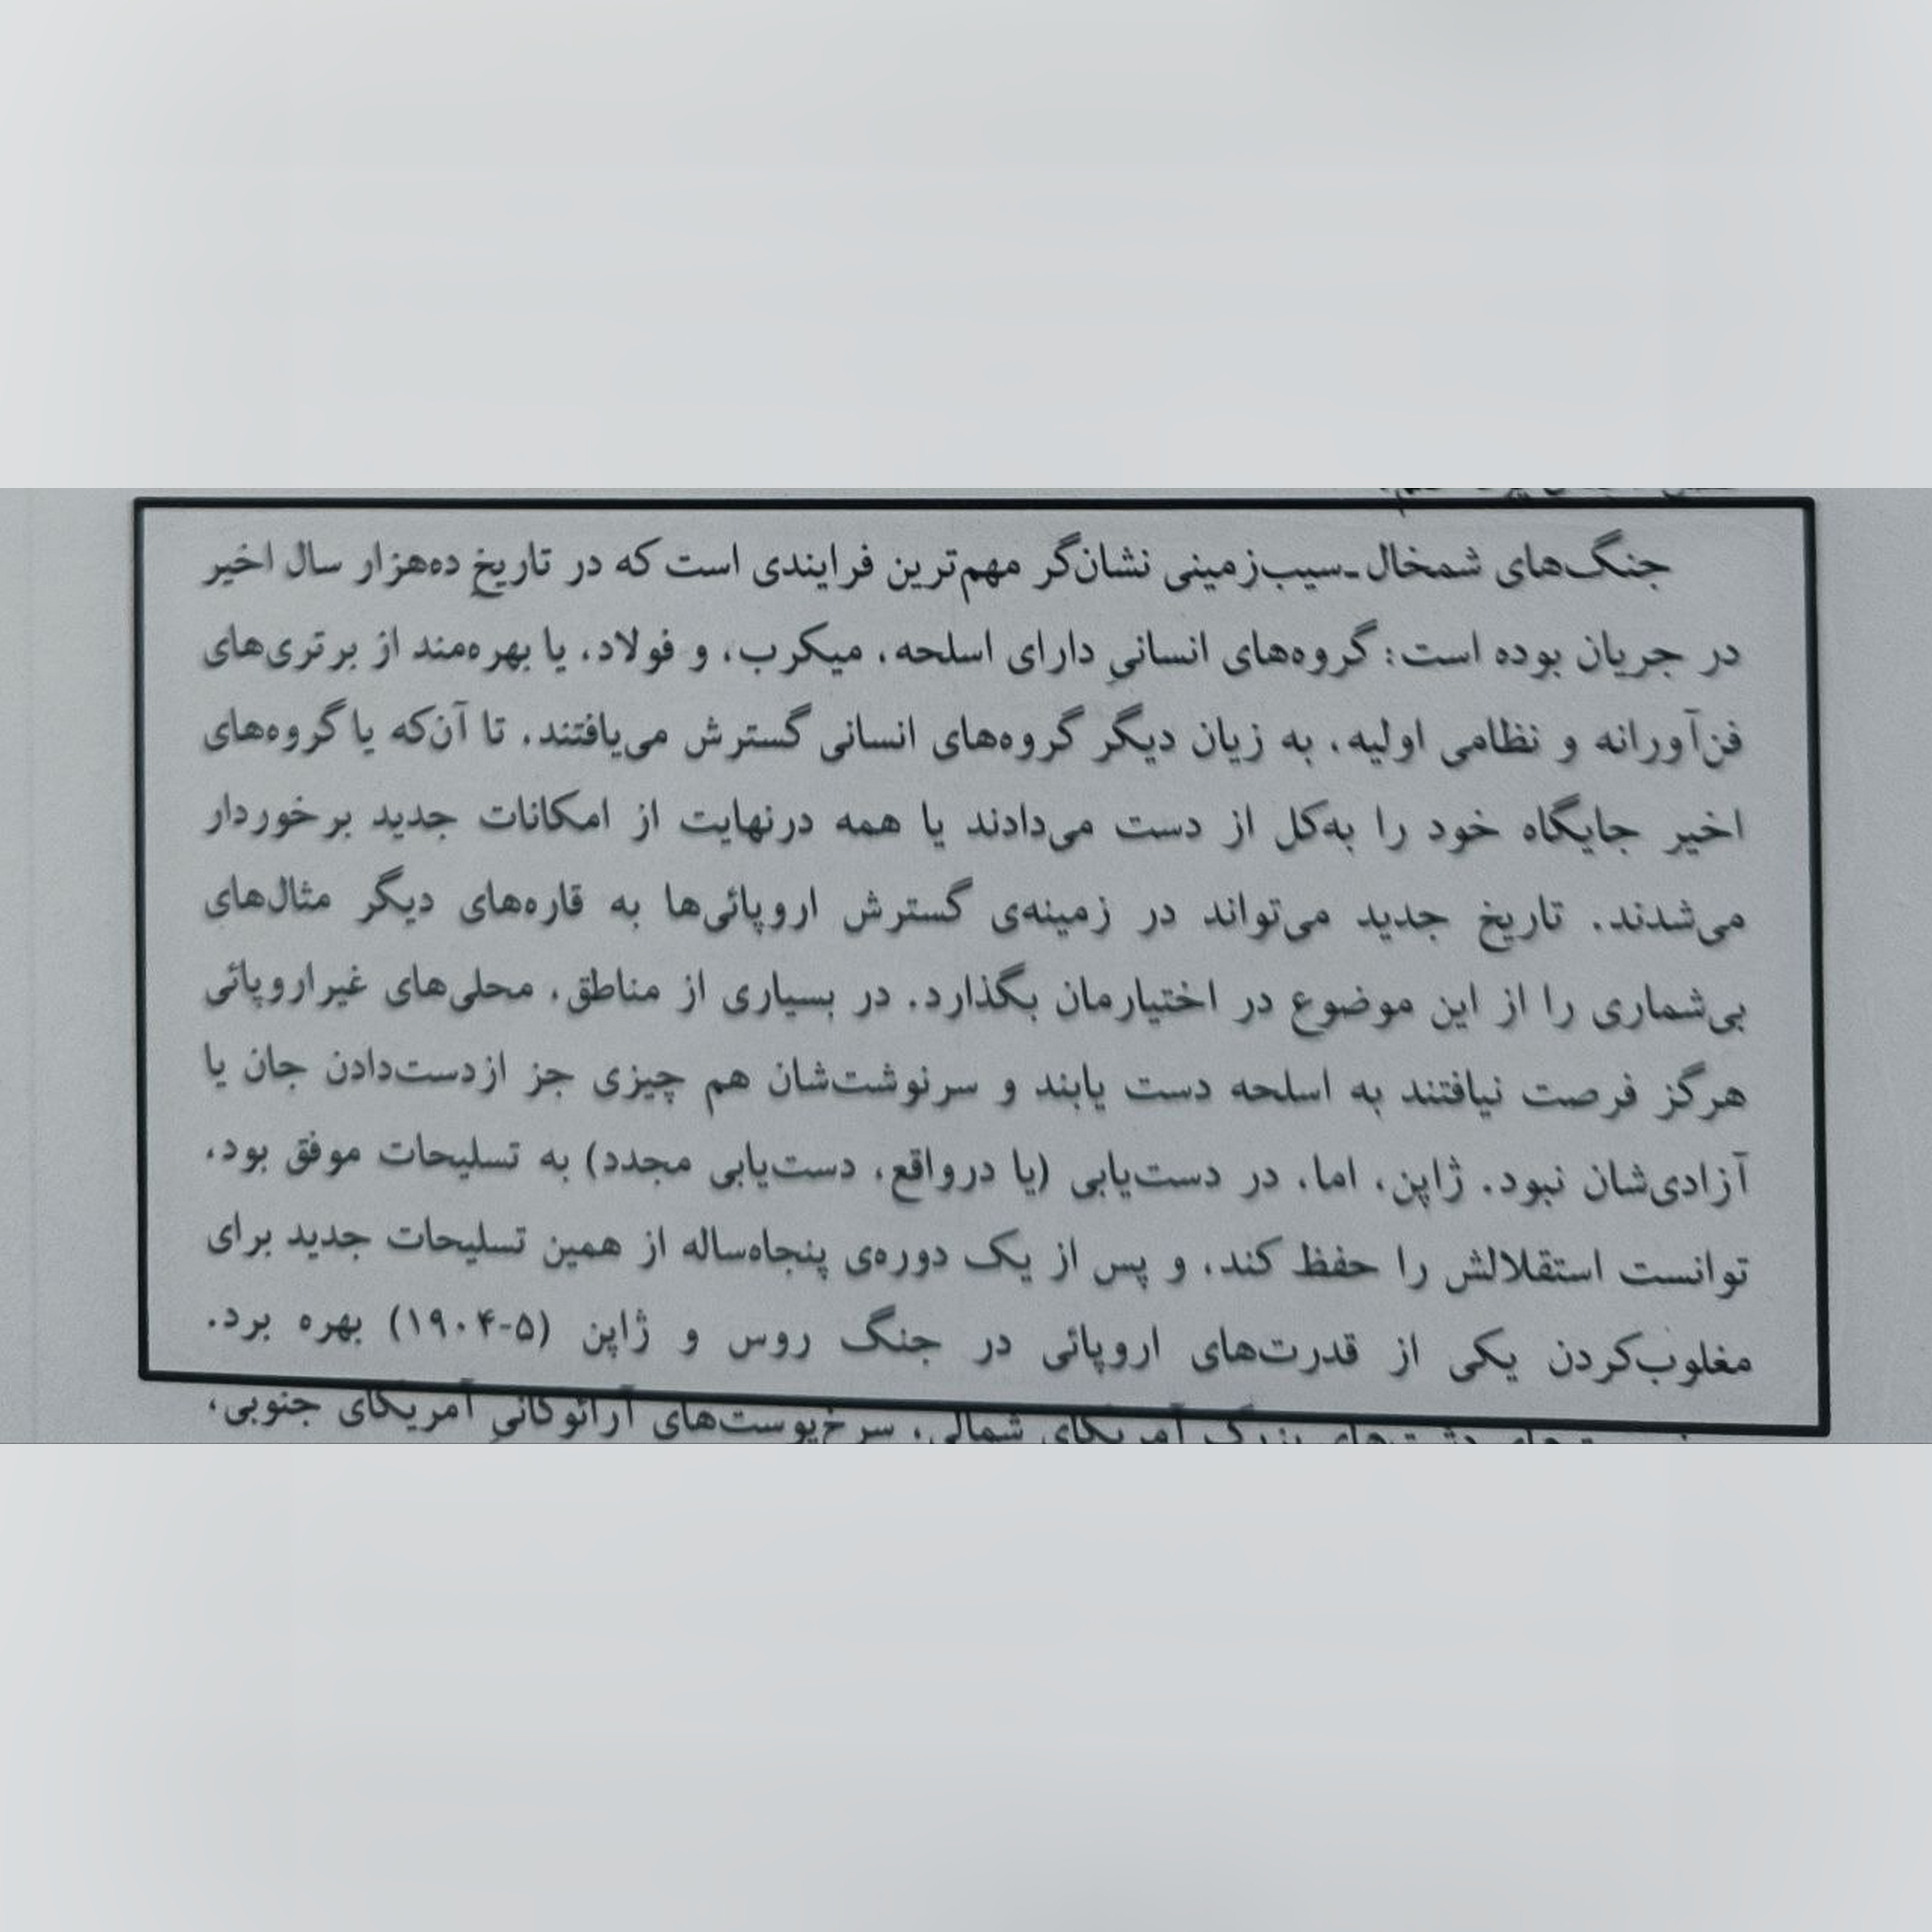 جنگ‌های شمخال-سیب‌زمینی نشان‌گر مهم‌ترین فرایندی است که در تاریخِ ده‌هزار سال اخیر
در جریان بوده است: گروه‌های انسانیِ دارای اسلحه، میکرب، و فولاد، یا بهره‌مند از برتری‌های
فن‌آورانه و نظامی اولیه، به زیان دیگر گروه‌های انسانی گسترش می‌یافتند، تا آن‌که یا گروه‌های
اخیر جایگاه خود را به‌کل از دست می‌دادند یا همه درنهایت از امکانات جدید برخوردار
می‌شدند. تاریخ جدید می‌تواند در زمینه‌ی گسترش اروپائی‌ها به قاره‌های دیگر مثال‌های
بی‌شماری را از این موضوع در اختیارمان بگذارد. در بسیاری از مناطق، محلی‌های غیراروپائی
هرگز فرصت نیافتند به اسلحه دست یابند و سرنوشت‌شان هم چیزی جز ازدست‌دادن جان یا
آزادی‌شان نبود. ژاپن، اما، در دست‌یابی (یا درواقع، دست‌یابی مجدد) به تسلیحات موفق بود،
توانست استقلالش را حفظ کند، و پس از یک دوره‌ی پنجاه‌ساله از همین تسلیحات جدید برای
مغلوب‌کردن یکی از قدرت‌های اروپائی در جنگ روس و ژاپن (۵-۱۹۰۴) بهره برد.
آمریکای شمالی، سرخ‌پوست‌های آرائوکانیِ آمریکای جنوبی،